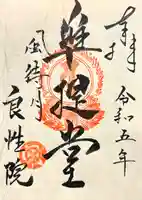 奉拝
令和五年
準提堂
風待月
良性院